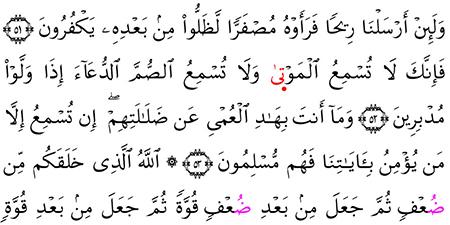 وَلَئِنْ أَرْسَلْنَا رِيحًا فَرَأَوْهُ مُصْفَرًّا لَظَلُّوا۟ مِنۢ بَعْدِهِۦ يَكْفُرُونَ ۝٥١
فَإِنَّكَ لَا تُسْمِعُ الْمَوْتىٰ وَلَا تُسْمِعُ الصُّمَّ الدُّعَآءَ إِذَا وَلَّوْا۟
مُدْبِرِينَ ۝٥٢ وَمَآ أَنتَ بِهَٰدِ الْعُمْيِ عَن ضَلَٰلَتِهِمْۖ إِن تُسْمِعُ إِلَّا
مَن يُؤْمِنُ بِـَٔايَٰتِنَا فَهُم مُّسْلِمُونَ ۝٥٣ ۞ اللَّهُ الَّذِى خَلَقَكُم مِّن
ضُعْفٍ ثُمَّ جَعَلَ مِنۢ بَعْدِ ضُعْفٍ قُوَّةً ثُمَّ جَعَلَ مِنۢ بَعْدِ قُوَّةٍ